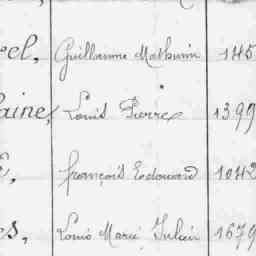 el, Guillaume Mathurin 145
aine, Louis Pierre 1399
, François Edouard 1042
es, Louis Marie Julien 1679